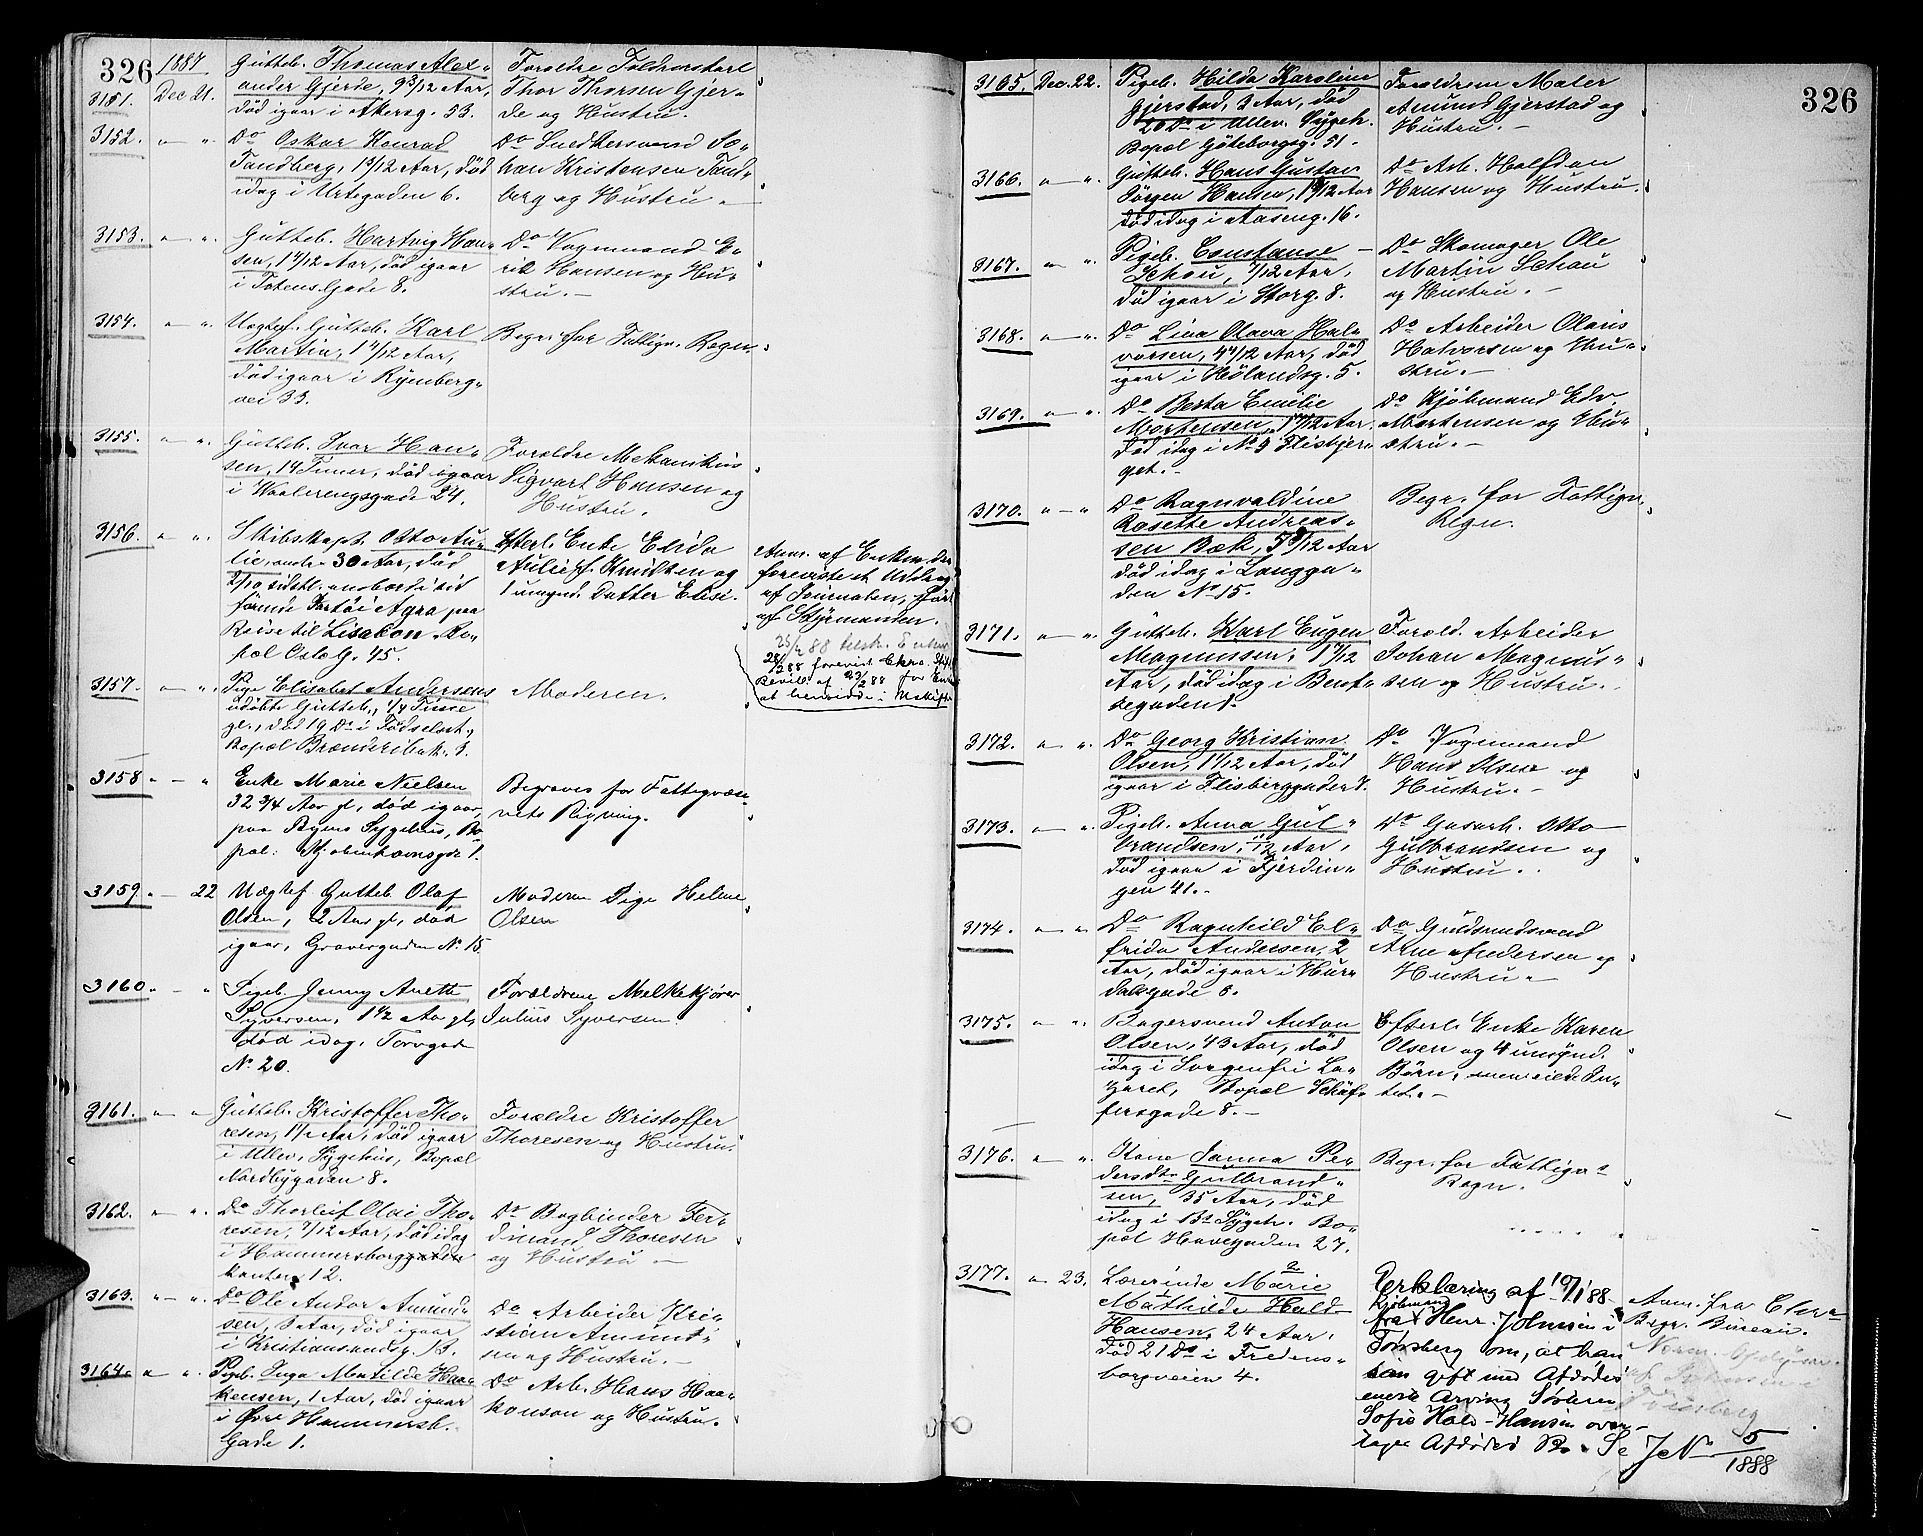 326
1887
3151. Dec 21.
Gutteb. Thomas Alex-
ander Gjerde, 9 3/12 Aar,
död igaar i Akersg. 53.
Forældre Toldoverbetj.
Thor Thorsen Gjer-
de og Hustru.
3152. " — "
Do Oskar Konrad
Tandberg, 1 3/12 Aar, död
idag i Urtegaden 6.
Do Snedkersvend Jo-
han Kristensen Tand-
berg og Hustru. —
3153. " — "
Gutteb. Hartvig Han-
sen, 1 1/12 Aar, död igaar
i Totens Gade 8.
Do Vognmand E-
rik Hansen og Hu-
stru. —
3154. " — "
Uægtef. Gutteb. Karl
Martin, 1 4/12 Aar,
död igaar i Ryenberg-
vei 33.
Begr. for Fattigv. Regn.
3155. " — "
Gutteb. Ivar Han-
sen, 14 Timer, död igaar
i Vaalerengsgade 24.
Forældre Mekanikus
Sigvart Hansen og
Hustru.
3156. " — "
Skibskapt. Otto Au-
lie, 30 Aar, död
2/10 sidstl. ombord i sit
förende Fartöi Agra paa
Reise til Lisabon. Bo-
pæl Oslog. 45.
Efterl. Enke Elida
Aulie f. Knudsen og
1 umynd. Datter Elisi.
Anm. af Enken, der
foreviste et Uddrag
af Journalen, fört
af Styrmanden.
28/2 88 forevist Skra. Skifte
Bevill. af 23/2 88 for Enken
at hensidde i Uskifte
3157. " — "
Pige Elisabet Andersens
udöbte Gutteb., 1/4 Time
gl., död 19 Ds i Födselsst.,
Bopæl Brænderibak. 3.
Moderen.
3158 " — "
Enke Marie Nielsen
32 3/4 Aar gl, död igaar,
paa Byens Sygehus, Bo-
pæl: Kjøbenhavnsgde 1.
Begraves for Fattigvæse-
nets Regning.
3159. " — 22
Uægtef Gutteb Olaf
Olsen, 2 Aar gl, död
igaar, Gravergaden No 15.
Moderen Pige Helene
Olsen
3160. " — "
Pigeb. Jenny Anette
Syversen, 1 1/2 Aar gl,
död idag, Torvgad
No 20.
Forældrene Melkekjører
Julius Syversen.
3161. " — "
Gutteb. Kristoffer Tho-
resen, 1 1/2 Aar, död igaar
i Ullev. Sygehus, Bopæl
Nordbygaden 8.
Forældre Kristoffer
Thoresen og Hustru.
3162. " — "
Do Thorleif Olai Tho-
resen, 7/12 Aar, död idag
i Hammersborggaden
kanten 12.
Do Bogbinder Fer-
dinand Thoresen
og Hustru —
3163. " — "
Do Ole Andor Amund-
sen, 3 Aar, död igaar
i Kristiansandg. 13.
Do Arbeider Kri-
stian Amund-
sen og Hustru. —
3164. " — "
Pigeb. Inga Matilde Haa-
kensen, 1 Aar, död igaar
i Övre Hammersb.
Gade 1.
Do Arb. Hans Haa-
konson og Hustru.
326
3165. Dec. 22.
Pigeb. Hilda Karoline
Gjerstad, 3 Aar, död
20 Ds i Ullev. Sygeh.
Bopæl Göteborgsg. 51.
Forældrene Maler
Amund Gjerstad og
Hustru. —
3166. " — "
Gutteb. Hans Gustav
Jörgen Hansen, 1 9/12 Aar
död idag i Aaseng. 16.
Do Arb. Halfdan
Hansen og Hustru.
3167. " — "
Pigeb. Constanse —
Schou, 7/12 Aar,
död igaar i Storg. 8.
Do Skomager Ole
Martin Schou
og Hustru. —
3168. " — "
Do Lina Olava Hal-
vorsen, 4 4/12 Aar, död
igaar i Hölandsg. 5.
Do Arbeider Olaris
Halvorsen og Hu-
stru. —
3169. " — "
Do Berta Emilie
Mortensen, 1 11/12 Aar,
död idag i No 9 Flisbjer-
get. —
Do Kjöbmand Edv.
Mortensen og Hu-
stru. —
3170. " — "
Do Ragnvaldine
Rosette Andreas-
sen Bæk, 5 8/12 Aar
död idag i Langga-
den No 15.
Begr. for Fattigv.
Regn.
3171. " — "
Gutteb. Karl Eugen
Magnussen, 1 7/12
Aar, död idag i Bent-
segaden 1.
Foræld. Arbeider
Johan Magnus-
sen og Hustru.
3172. " — "
Do Georg Kristian
Olsen, 1 1/12 Aar, död
igaar i Flisberggaden 1.
Do Vognmand
Hans Olsen og
Hustru. —
3173. " — "
Pigeb. Anna Gul-
brandsen, 1/12 Aar,
död igaar i Fjerdin-
gen 41. —
Do Gasarb. Otto
Gulbrandsen og
Hustru.
3174. " — "
Do Ragnhild El-
frida Andersen, 2
Aar, död igaar i Hur-
dalsgade 8.
Do Gudsmedsvend
Arne Andersen og
Hustru. —
3175. " — "
Bagersvend Anton
Olsen, 43 Aar, död
idag i Sorgenfri La-
zaret, Bopæl Schäf-
fersgade 8. —
Efterl. Enke Karen
Olsen og 4 umynd.
Börn, men eiede In-
tet. —
3176. " — "
Kone Janna Pe-
dersdtr Gulbrand-
sen, 35 Aar, död
idag i Bs Sygeh. Bo-
pæl Havegaden 27.
Begr. for Fattigv.
Regn.
3177. " — 23.
Lærerinde Marie
Mathilde Hald-
Hansen, 24 Aar,
död 21 Ds i Fredens-
borgveien 4.
Erklæring af 10/1 88
fra Kjöbmand Henr. Johnsen i
Tønsberg om, at han
som gift med Afdödes
eneste Arving Söster
Sofie Hald-Hansen over-
tager Afdödes Bo. Se J No 5/1888
Anm. fra Chra
Begr. Bureau.